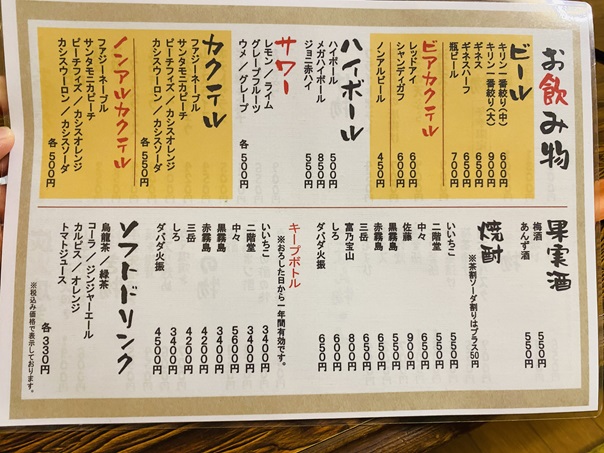 お飲み物
ビール
キリン一番絞り(中) 600円
キリン一番絞り(大) 900円
ギネス 900円
ギネスハーフ 650円
瓶ビール 700円
ビアカクテル
レッドアイ 600円
シャンディガフ 600円
ノンアルビール 450円
ハイボール
ハイボール 500円
メガハイボール 850円
ジョニ赤ハイ 550円
サワー
レモン/ライム
グレープフルーツ
ウメ/グレープ
各500円
カクテル
ファジーネーブル
サンタモニカピーチ
ピーチフィズ/カシスオレンジ
カシスウーロン/カシスソーダ
各550円
ノンアルカクテル
ファジーネーブル
サンタモニカピーチ
ピーチフィズ/カシスオレンジ
カシスウーロン/カシスソーダ
各500円
果実酒
梅酒 550円
あんず酒 550円
焼酎
※茶割ソーダ割りはプラス50円
いいちこ 550円
二階堂 550円
中々 550円
佐藤 900円
黒霧島 550円
赤霧島 650円
三岳 600円
富乃宝山 800円
しろ 600円
ダバダ火振 650円
キープボトル
※おろした日から一年間有効です。
いいちこ 3400円
二階堂 3400円
中々 5600円
黒霧島 3400円
赤霧島 4200円
三岳 4200円
しろ 3400円
ダバダ火振 4500円
ソフトドリンク
烏龍茶/緑茶
コーラ/ジンジャーエール
カルピス/オレンジ
トマトジュース
各330円
※税込み価格で表示しております。